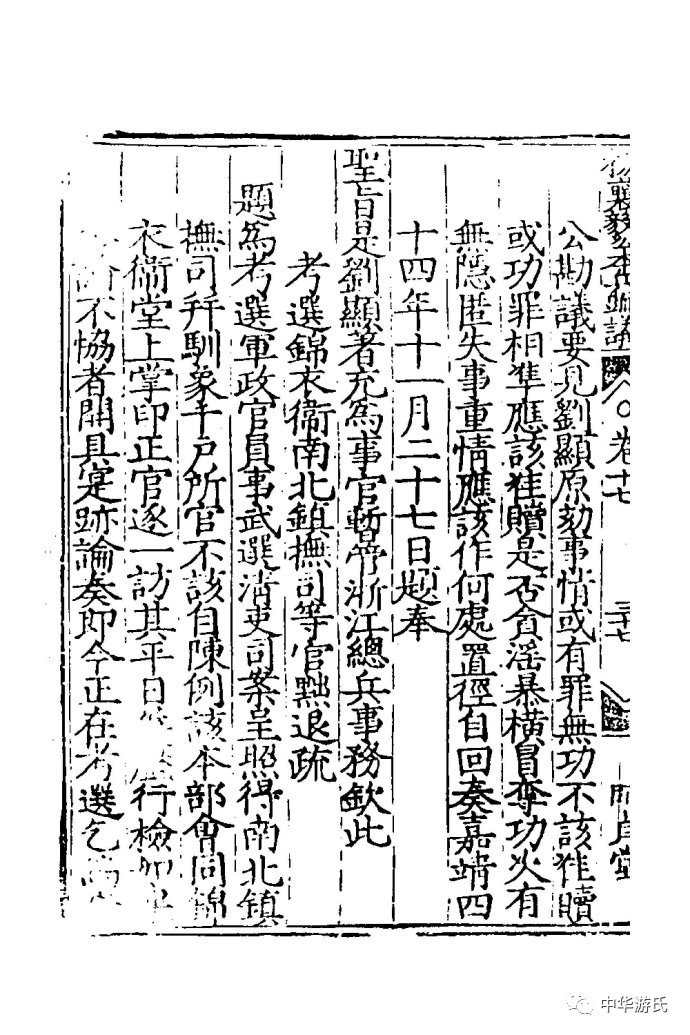 楊襄毅本兵疏議 八〇卷十七 三十七
公勘議要見劉顯原劾事情或有罪無功不該准贖
或功罪相準應該准贖是否貪滛暴橫冒奪功次有
無隱匿失事重情應該作何處置徑自回奏嘉靖四
十四年十一月二十七日題奉
聖旨是劉顯著充為事官暫管浙江總兵事務欽此
考選錦衣衞南北鎮撫司等官黜退疏
題為考選軍政官員事武選清吏司案呈照得南北鎮
撫司幷馴象千戶所官不該自陳例該本部會同錦
衣衞堂上掌印正官逐一訪其平日行檢
不恊者開具寔跡論奏即今正在考選乞
中华游氏